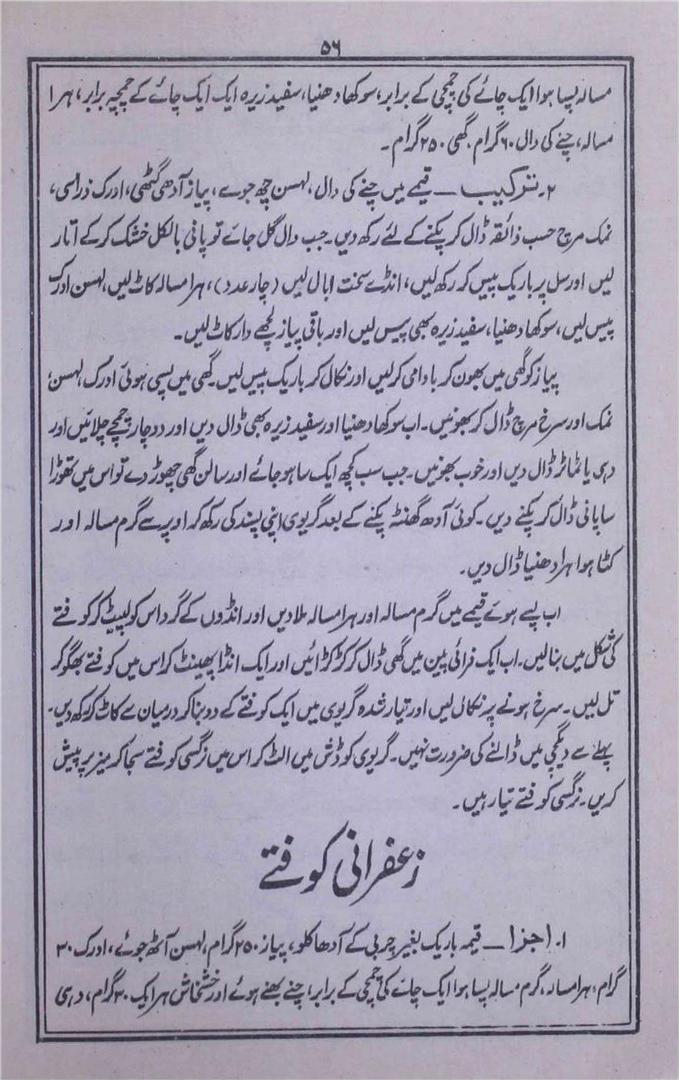 ۵۶
مسالہ پسا ہوا ایک چائے کی چمچی کے برابر، سوکھا دھنیا، سفید زیرہ ایک ایک چائے کے چمچہ برابر، ہرا
مسالہ، چنے کی دال ۶۰ گرام، گھی ۲۵۰ گرام۔
۲۔ ترکیب — قیمے میں چنے کی دال، لہسن چھ جوے، پیاز آدھی گٹھی، ادرک ذرا سی،
نمک مرچ حسب ذائقہ ڈال کر پکنے کے لئے رکھ دیں۔ جب دال گل جائے تو پانی بالکل خشک کر کے اتار
لیں اور سل پر باریک پیس کر رکھ لیں، انڈے سخت ابال لیں (چار عدد)، ہرا مسالہ کاٹ لیں، لہسن ادرک
پیس لیں، سوکھا دھنیا، سفید زیرہ بھی پیس لیں اور باقی پیاز لچھے دار کاٹ لیں۔
پیاز کو گھی میں بھون کر بادامی کر لیں اور نکال کر باریک پیس لیں۔ گھی میں پسی ہوئی ادرک، لہسن،
نمک اور سرخ مرچ ڈال کر بھونیں۔ اب سوکھا دھنیا اور سفید زیرہ بھی ڈال دیں اور دو چار چمچے چلائیں اور
دہی یا ٹماٹر ڈال دیں اور خوب بھونیں۔ جب سب کچھ ایک سا ہو جائے اور سالن گھی چھوڑ دے تو اس میں تھوڑا
سا پانی ڈال کر پکنے دیں۔ کوئی آدھ گھنٹہ پکنے کے بعد گریوی اپنی پسند کی رکھ کر اوپر سے گرم مسالہ اور
کٹا ہوا ہرا دھنیا ڈال دیں۔
اب پسے ہوئے قیمے میں گرم مسالہ اور ہرا مسالہ ملا دیں اور انڈوں کے گرد اس کو لپیٹ کر کوفتے
کی شکل میں بنا لیں۔ اب ایک فرائی پین میں گھی ڈال کر کڑکڑائیں اور ایک انڈا پھینٹ کر اس میں کوفتے بھگو کر
تل لیں۔ سرخ ہونے پر نکال لیں اور تیار شدہ گریوی میں ایک کوفتے کے دو بنا کر درمیان سے کاٹ کر رکھ دیں۔
پہلے سے دیگچی میں ڈالنے کی ضرورت نہیں۔ گریوی کو ڈش میں الٹ کر اس میں نرگسی کوفتے سجا کر میز پر پیش
کریں۔ نرگسی کوفتے تیار ہیں۔
زعفرانی کوفتے
۱۔ اجزا — قیمہ باریک بغیر چربی کے آدھا کلو، پیاز ۲۵۰ گرام، لہسن آٹھ جوئے، ادرک ۳۰
گرام، ہرا مسالہ، گرم مسالہ پسا ہوا ایک چائے کی چمچی کے برابر، چنے بھنے ہوئے اور خشخاش ہر ایک ۳۰ گرام، دہی